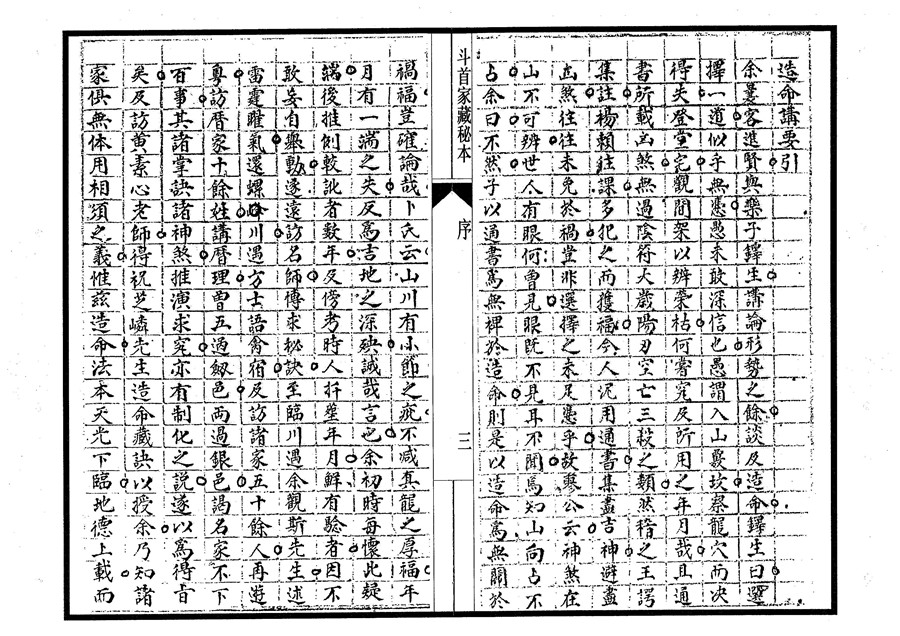 造命講要引
余曩客進賢與樂子鐸生講論形勢之餘談及造命鐸生曰選
擇一道似乎無憑愚未敢深信也愚謂入山裊坎察龍穴而决
得失登堂宅觀間架以辨榮枯何嘗究及所用之年月哉且通
書所載凶煞無過陰符大歲陽刃空亡三殺之類然稽之王謌
集註楊賴徃課多犯之而獲福今人泥用通書集盡吉神避盡
凶煞徃徃未免於禍豈非選擇之未足憑乎故琴公云神煞在
山不可辨世人有眼何曾見眼既不見耳不聞焉知山向占不
占余曰不然子以通書爲無裨於造命則是以造命爲無關於
斗首家藏秘本
序
三
禍福豈確論哉卜氏云山川有小節之疵不减真龍之厚福年
月有一端之失反爲吉地之深殃誠哉言也余初時每懷此疑
端後推創較訛者數年及傍考時人扦塋年月鮮有驗者因不
敢妄自舉動遂遠訪名師博求秘訣至臨川遇余觀斯先生述
雷霆睢氣還螺峰川遇方士語禽宿及訪諸家五十餘人再遊
粤訪曆家十餘姓講曆理曽五過劔邑两過銀邑謁名家不下
百事其諸掌訣諸神煞推演求究亦有制化之說遂以爲得旨
矣及訪黄素心老師得祝芝嶙先生造命藏訣以授余乃知諸
家俱無体用相須之義惟兹造命法本天光下臨地德上載而